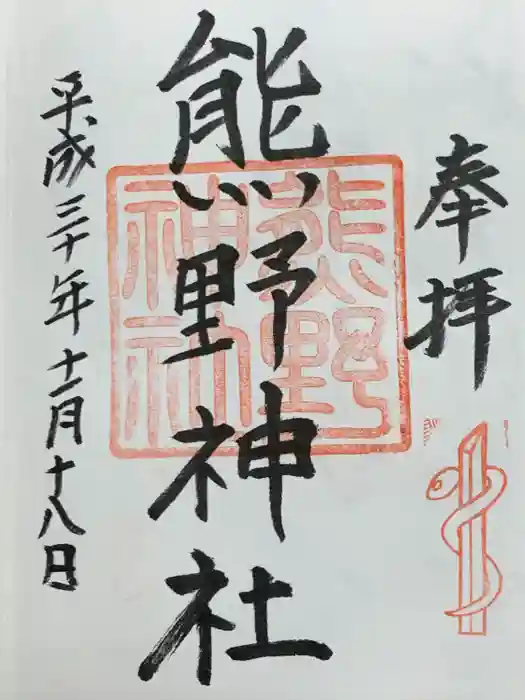 奉拝
熊野神社
熊野
神社
平成三十年十一月十八日